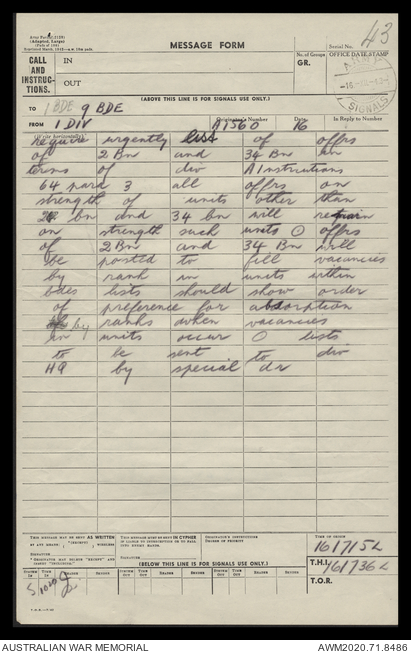 MESSAGE FORM
Serial No. 43
CALL AND INSTRUC-TIONS.
IN
OUT
No. of Groups
GR.
OFFICE DATE STAMP
SIGNALS
(ABOVE THIS LINE IS FOR SIGNALS USE ONLY.)
TO 1 BDE 9 BDE
FROM 1 DIV
Originator's Number A1560
Date 16
In Reply to Number
(Write horizontally)
require urgently list of offrs
of 2 Bn and 34 Bn in
terms of div A Instructions
64 para 3 all offrs on
strength of units other than
2 bn and 34 bn will remain
on strength such units O offrs
of 2 Bn and 34 Bn will
be posted to fill vacancies
by rank in units within
bdes lists should show order
of preference for absorption
by ranks when vacancies
in units occur O lists
to be sent to div
HQ by special dr
THIS MESSAGE MAY BE SENT AS WRITTEN
THIS MESSAGE MUST BE SENT IN CIPHER
ORIGINATOR'S INSTRUCTIONS
DEGREE OF PRIORITY
TIME OF ORIGIN
161715L
(BELOW THIS LINE IS FOR SIGNALS USE ONLY.)
T.H.I. 161736L
T.O.R.
AUSTRALIAN WAR MEMORIAL
AWM2020.71.8486